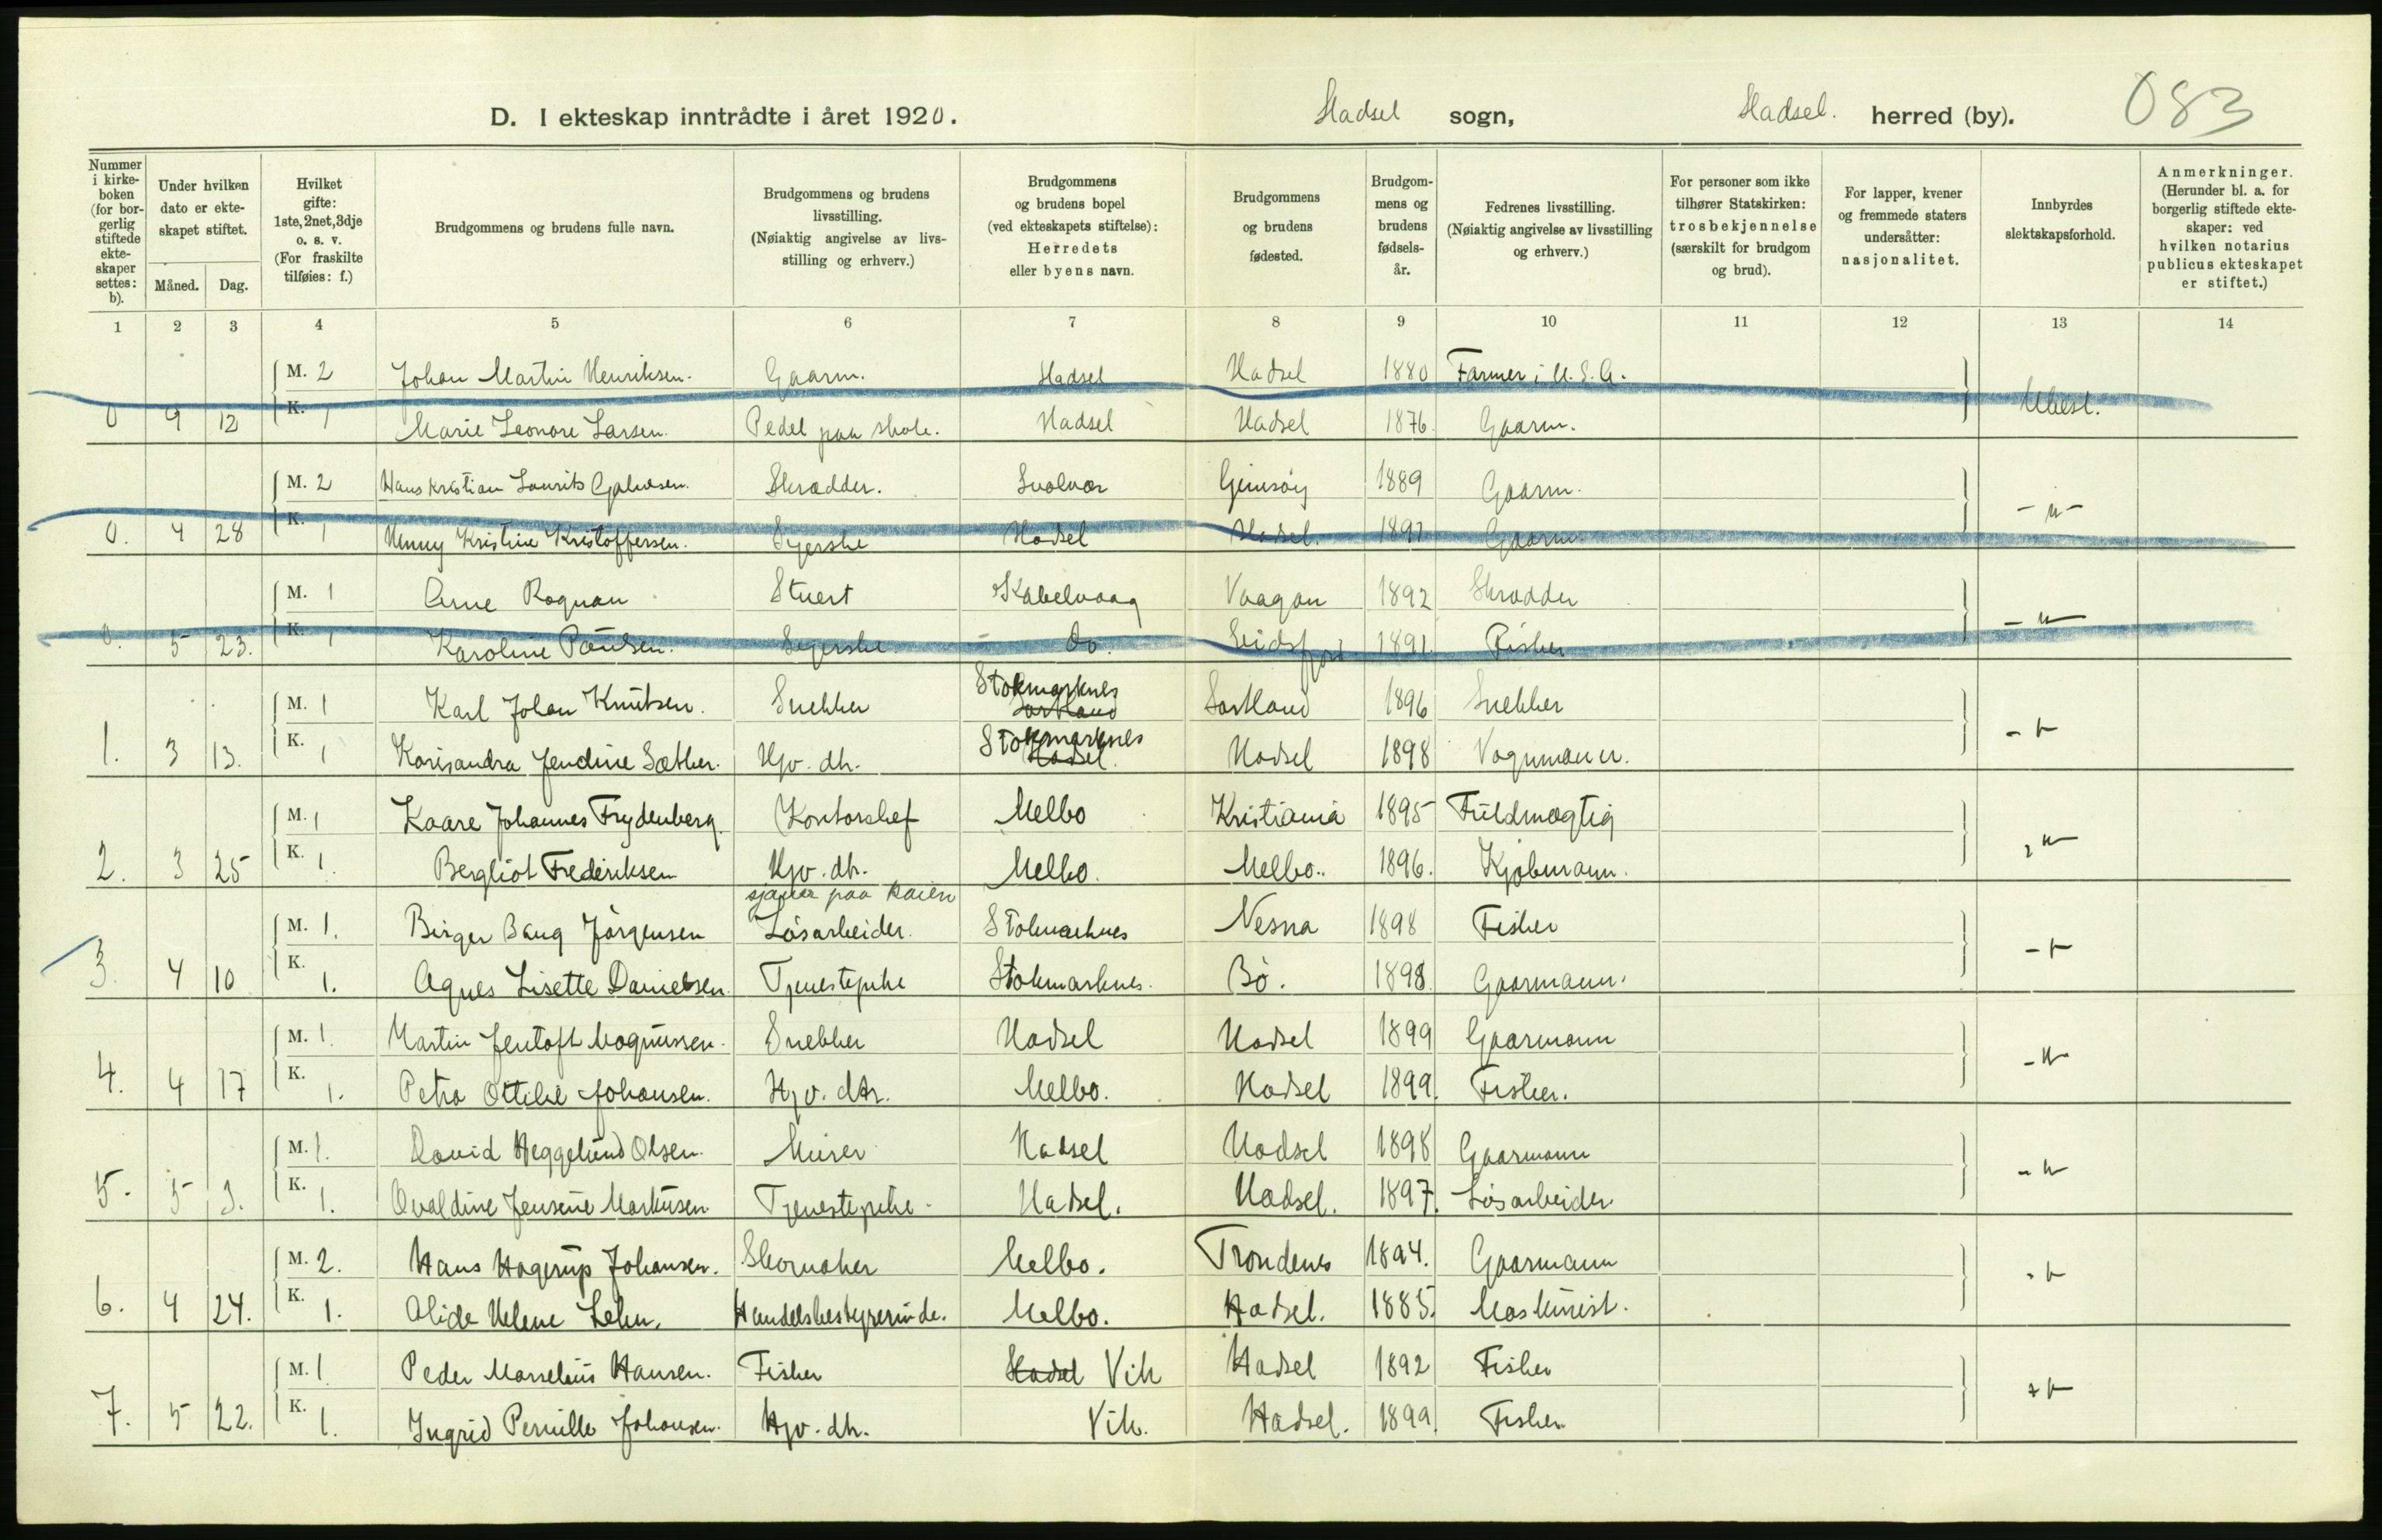 D. I ekteskap inntrådte i året 1920. Hadsel sogn, Hadsel. herred (by). 083
Nummer i kirkeboken (for borgerlig stiftede ekteskaper settes: b).
Under hvilken dato er ekteskapet stiftet.
Måned. Dag.
Hvilket gifte: 1ste, 2net, 3dje o. s. v. (For fraskilte tilføies: f.)
Brudgommens og brudens fulle navn.
Brudgommens og brudens livsstilling. (Nøiaktig angivelse av livsstilling og erhverv.)
Brudgommens og brudens bopel (ved ekteskapets stiftelse): Herredets eller byens navn.
Brudgommens og brudens fødested.
Brudgommens og brudens fødselsår.
Fedrenes livsstilling. (Nøiaktig angivelse av livsstilling og erhverv.)
For personer som ikke tilhører Statskirken: trosbekjennelse (særskilt for brudgom og brud).
For lapper, kvener og fremmede staters undersåtter: nasjonalitet.
Innbyrdes slektskapsforhold.
Anmerkninger. (Herunder bl. a. for borgerlig stiftede ekteskaper: ved hvilken notarius publicus ekteskapet er stiftet.)
1 2 3 4 5 6 7 8 9 10 11 12 13 14
M. 2 Johan Martin Henriksen. Gaarm. Hadsel Hadsel 1880 Farmer i U.S.A.
0 9 12 K. 1 Marie Leonore Larsen. Pedel paa skole. Hadsel Hadsel 1876. Gaarm. Ubesl.
M. 2 Hans Kristian Laurits Skrædder. Svolvær Gimsøy 1889 Gaarm.
0. 4 28 K. 1 Henny Kristine Kristoffersen. Syerske Hadsel Hadsel. 1897 Gaarm. - " -
M. 1 Arne Rognan Stuert Kabelvaag Vaagan 1892 Skrædder
0. 5 23. K. 1 Karoline Paulsen. Syerske - Do. Eidsfjord 1891. Fisker - " -
M. 1 Karl Johan Knutsen. Snekker Stokmarknes Sortland Sortland 1896 Snekker
1. 3 13. K. 1 Jendine Sæther. Hjv. dtr. Stokmarknes Hadsel. Hadsel 1898 Vognmann. - " -
M. 1 Kaare Johannes Frydenberg. Kontorchef Melbo Kristiania 1895 Fuldmægtig
2. 3 25 K. 1. Bergliot Frederiksen Hjv. dtr. Melbo. Melbo.. 1896. Kjøbmann. - " -
sjauer paa kaien
M. 1. Birger Bang Jørgensen Løsarbeider. Stokmarknes Nesna 1898 Fisker
3. 4 10 K. 1. Agnes Lisette Danielsen. Tjenestepike Stokmarknes. Bø. 1898. Gaarmann. - " -
M. 1. Martin Jentoft Magnussen. Snekker Hadsel Hadsel 1899 Gaarmann
4. 4 17 K. 1. Petra Ottilie Johansen. Hjv. dtr. Melbo. Hadsel 1899. Fisker. - " -
M. 1. David Heggelund Olsen. Murer Hadsel Hadsel 1898 Gaarmann
5. 5 3. K. 1. Ovaldine Jensine Markusen. Tjenestepike. Hadsel. Hadsel. 1897. Løsarbeider. - " -
M. 2. Hans Hagerup Johansen. Skomaker Melbo. Trondenes 1894. Gaarmann
6. 4 24. K. 1. Alide Helene Lehn. Handelsbestyrerinde. Melbo. Hadsel. 1885. Maskinist. - " -
M. 1 Peder Marselius Hansen. Fisker Hadsel Vik Hadsel 1892 Fisker
7. 5 22. K. 1. Ingrid Pernille Johansen. Hjv. dtr. Vik. Hadsel. 1899. Fisker. - " -